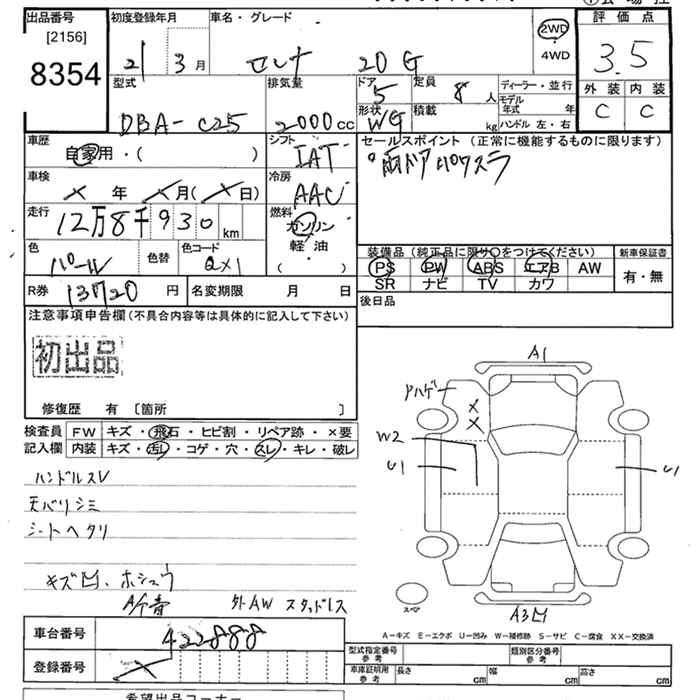 出品番号
[2156]
8354
初度登録年月
21 3 月
車名・グレード
セレナ 20G
2WD
・
4WD
評価点
3.5
外装 内装
C C
型式
DBA-C25
排気量
2000 cc
ドア
5
定員
8 人
形状
WG
積載
kg
ディーラー・並行
モデル
年式 年
ハンドル 左・右
車歴
自家用・( )
シフト
IAT
セールスポイント (正常に機能するものに限ります)
車検
年 月( 日)
冷房
AAC
走行
12万8千930 km
燃料
ガソリン
軽・油
・
( )
色
パール
色替
色コード
QX1
装備品 (純正品に限り○をつけてください)
PS PW ABS エアB AW
SR ナビ TV カワ
新車保証書
有・無
R券 13720 円
名変期限 月 日
後日品
注意事項申告欄 (不具合内容等は具体的に記入して下さい)
初出品
修復歴 有 〔箇所 〕
検査員
記入欄
FW キズ・飛石・ヒビ割・リペア跡・×要
内装 キズ・汚レ・コゲ・穴・スレ・キレ・破レ
ハンドルスレ
天バリシミ
シートヘタリ
キズ凹、ホシュウ
外AW スタッドレス
A1
ハゲ
X
X
W2
U1
U1
スペア
A3凹
A-キズ E-エクボ U-凹み W-補修跡 S-サビ C-腐食 XX-交換済
車台番号
422888
登録番号
型式指定番号
参考
類別区分番号
参考
車庫証明用
参考
長さ cm
幅 cm
高さ cm
希望出品コーナー